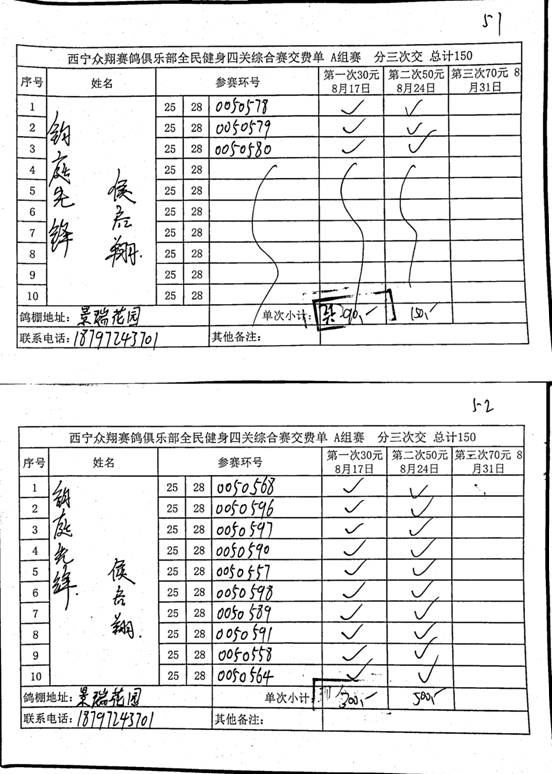 51
西宁众翔赛鸽俱乐部全民健身四关综合赛交费单 A组赛 分三次交 总计150
序号 姓名 参赛环号 第一次30元 8月17日 第二次50元 8月24日 第三次70元 8月31日
1 25 28 0050578 ✓ ✓
2 25 28 0050579 ✓ ✓
3 25 28 0050580 ✓ ✓
4 25 28
5 25 28
6 25 28
7 25 28
8 25 28
9 25 28
10 25 28
庭先锋
侯启翔.
鸽棚地址: 景瑞花园 单次小计: 90,- 150,-
联系电话: 18797243701 其他备注:
5-2
西宁众翔赛鸽俱乐部全民健身四关综合赛交费单 A组赛 分三次交 总计150
序号 姓名 参赛环号 第一次30元 8月17日 第二次50元 8月24日 第三次70元 8月31日
1 25 28 0050568 ✓ ✓
2 25 28 0050596 ✓ ✓
3 25 28 0050597 ✓ ✓
4 25 28 0050590 ✓ ✓
5 25 28 0050557 ✓ ✓
6 25 28 0050598 ✓ ✓
7 25 28 0050589 ✓ ✓
8 25 28 0050591 ✓ ✓
9 25 28 0050558 ✓ ✓
10 25 28 0050564 ✓ ✓
庭先锋.
侯启翔.
鸽棚地址: 景瑞花园 单次小计: 300,- 500,-
联系电话: 18797243701 其他备注: